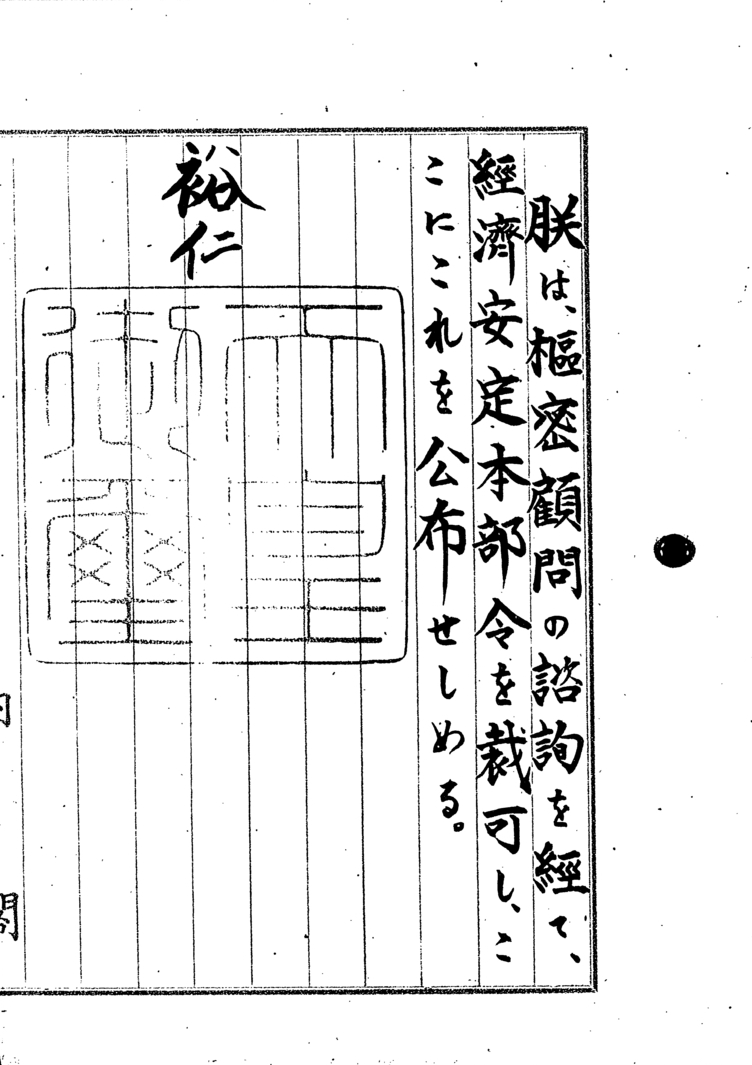 朕は、樞密顧問の諮詢を經て、
經濟安定本部令を裁可し、こ
こにこれを公布せしめる。
裕仁
天皇
御璽
閣